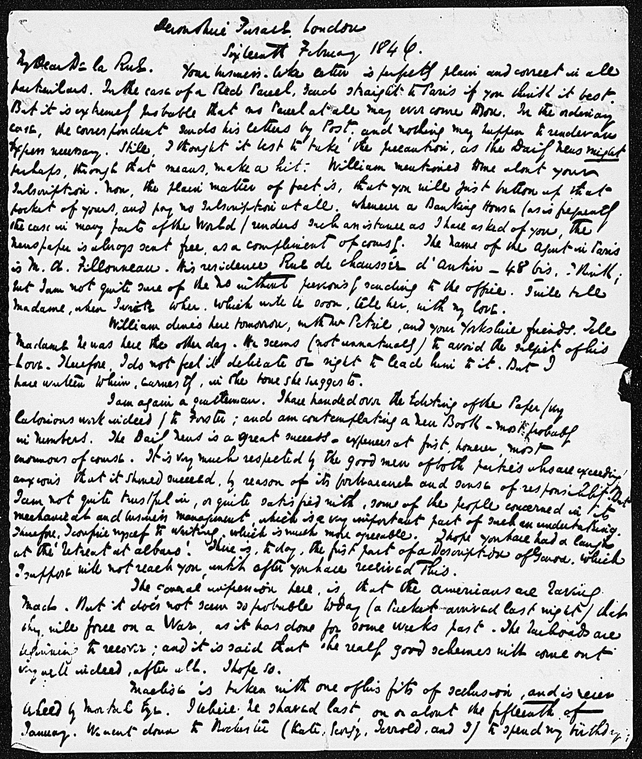 Devonshire Terrace, London
Sixteenth February 1846.
My Dear De la Rue. Your business-like letter is perfectly plain and correct in all
particulars. In the case of a Red Parcel, send straight to Paris if you think it best.
But it is extremely probable that no Parcel at all may ever come down. In the ordinary
case, the correspondent sends his letters by Post, and nothing may happen to render an
Express necessary. Still, I thought it best to take the precaution, as the Daily News might
perhaps, through that means, make a hit. William mentioned to me about your
Subscription. Now, the plain matter of fact is, that you will just button up that
pocket of yours, and pay no Subscription at all. Whenever a Banking House (as is frequently
the case in many parts of the World) renders such assistance as I have asked of you, the
newspaper is always sent free, as a complement of course. The name of the Agent in Paris
is M. A. Fillonneau. His residence Rue de Chaussée d'Antin – 48 bis, I think;
but I am not quite sure of the No without personally sending to the office. I will tell
Madame, when I write to her. Which will be soon, tell her, with my love.
William dines here tomorrow, with Mr Petrie, and your Yorkshire friends. Tell
Madame he was here the other day. He seems (not unnaturally) to avoid the subject of his
Love. Therefore, I do not feel it delicate or right to lead him to it. But I
have written to him, earnestly, in the tone she suggests.
I am again a gentleman. I have handed over the Editing of the Paper (very
laborious work indeed) to Forster; and am contemplating a New Book – most probably
in numbers. The Daily News is a great success – expences at first, however, most
enormous of course. It is very much respected by the good men of both parties who are exceedingly
anxious that it should succeed, by reason of its forbearance and sense of responsibility. But
I am not quite trustful in, or quite satisfied with, some of the people concerned in its
mechanical and business management, which is a very important part of such an undertaking.
Therefore, I confine myself to writing, which is much more agreeable. I hope you have had a laugh
at the 'retreat at Albaro'. There is, to day, the first part of a description of Genoa, which
I suppose will not reach you, until after you have received This.
The general impression here, is that the Americans are raving
mad. But it does not seem so probable to day (a Packet arrived last night) that
they will force on a War, as it has done for some weeks past. The Railroads are
beginning to recover; and it is said that the really good schemes will come out
very well indeed, after all. I hope so.
Maclise is taken with one of his fits of seclusion, and is never
by Mortal Eye. I believe he shaved last, on or about the fifteenth of
January. We went down to Rochester (Kate, Georgy, Jerrold, and I) to spend my birthday;